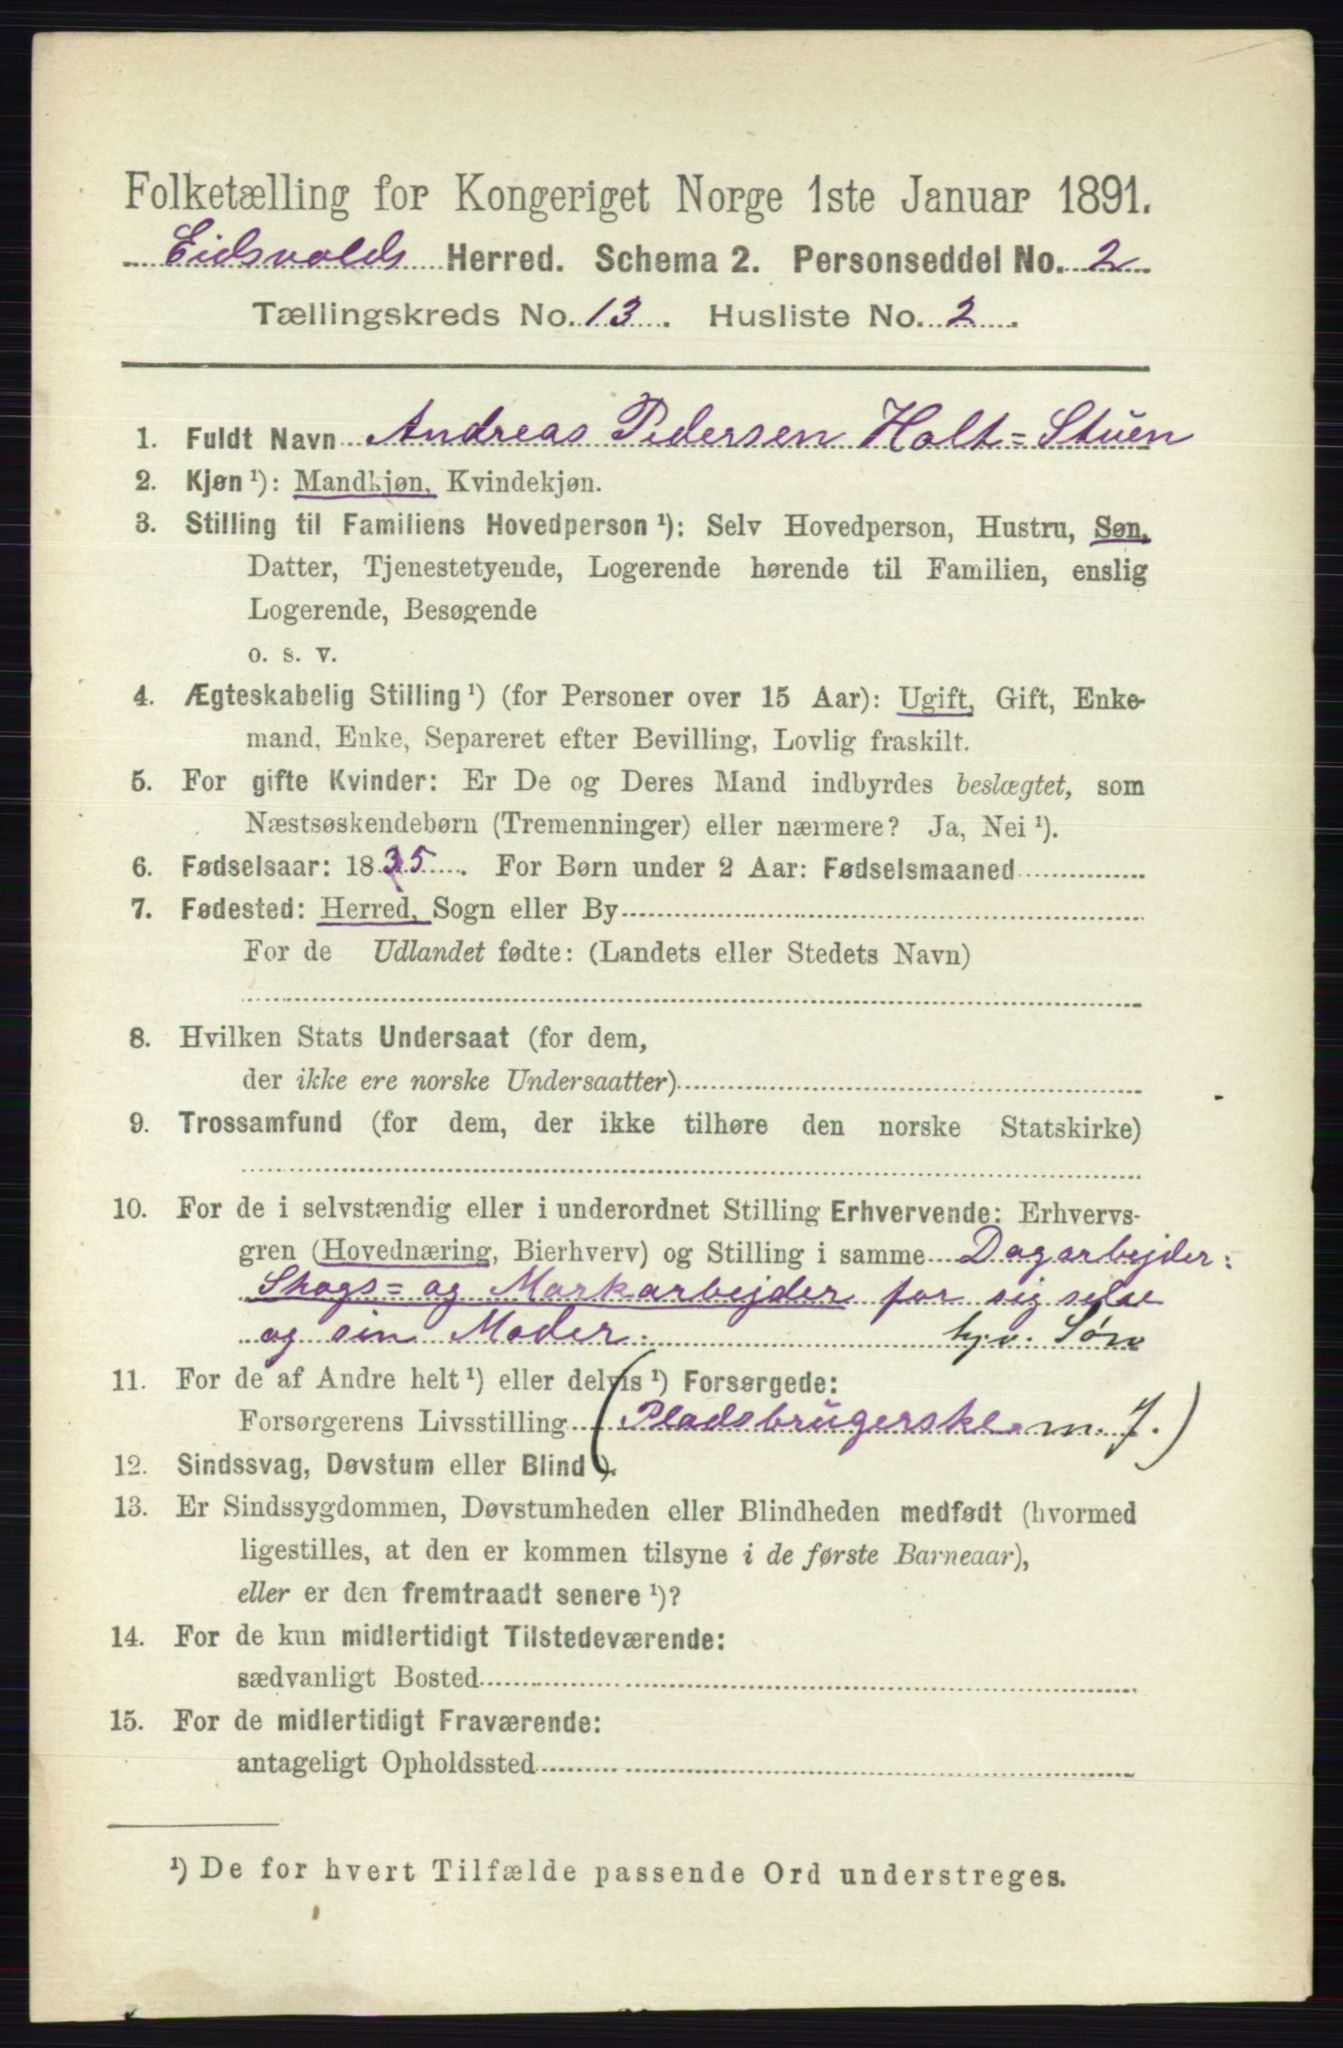 Folketælling for Kongeriget Norge 1ste Januar 1891.
Eidsvolds Herred. Schema 2. Personseddel No. 2
Tællingskreds No. 13. Husliste No. 2
1. Fuldt Navn Andreas Pedersen Holt=Stuen
2. Kjøn ¹): Mandkjøn, Kvindekjøn.
3. Stilling til Familiens Hovedperson ¹): Selv Hovedperson, Hustru, Søn,
Datter, Tjenestetyende, Logerende hørende til Familien, enslig
Logerende, Besøgende
o. s. v.
4. Ægteskabelig Stilling ¹) (for Personer over 15 Aar): Ugift, Gift, Enke-
mand, Enke, Separeret efter Bevilling, Lovlig fraskilt.
5. For gifte Kvinder: Er De og Deres Mand indbyrdes beslægtet, som
Næstsøskendebørn (Tremenninger) eller nærmere? Ja, Nei ¹).
6. Fødselsaar: 1835. For Børn under 2 Aar: Fødselsmaaned
7. Fødested: Herred, Sogn eller By
For de Udlandet fødte: (Landets eller Stedets Navn)
8. Hvilken Stats Undersaat (for dem,
der ikke ere norske Undersaatter)
9. Trossamfund (for dem, der ikke tilhøre den norske Statskirke)
10. For de i selvstændig eller i underordnet Stilling Erhvervende: Erhvervs-
gren (Hovednæring, Bierhverv) og Stilling i samme Dagarbejder:
Skogs= og Markarbejder for sig selv
og sin Moder. hjv. Søn
11. For de af Andre helt ¹) eller delvis ¹) Forsørgede:
Forsørgerens Livsstilling (Pladsbrugerske m. J.)
12. Sindssvag, Døvstum eller Blind ¹).
13. Er Sindssygdommen, Døvstumheden eller Blindheden medfødt (hvormed
ligestilles, at den er kommen tilsyne i de første Barneaar),
eller er den fremtraadt senere ¹)?
14. For de kun midlertidigt Tilstedeværende:
sædvanligt Bosted
15. For de midlertidigt Fraværende:
antageligt Opholdssted
¹) De for hvert Tilfælde passende Ord understreges.